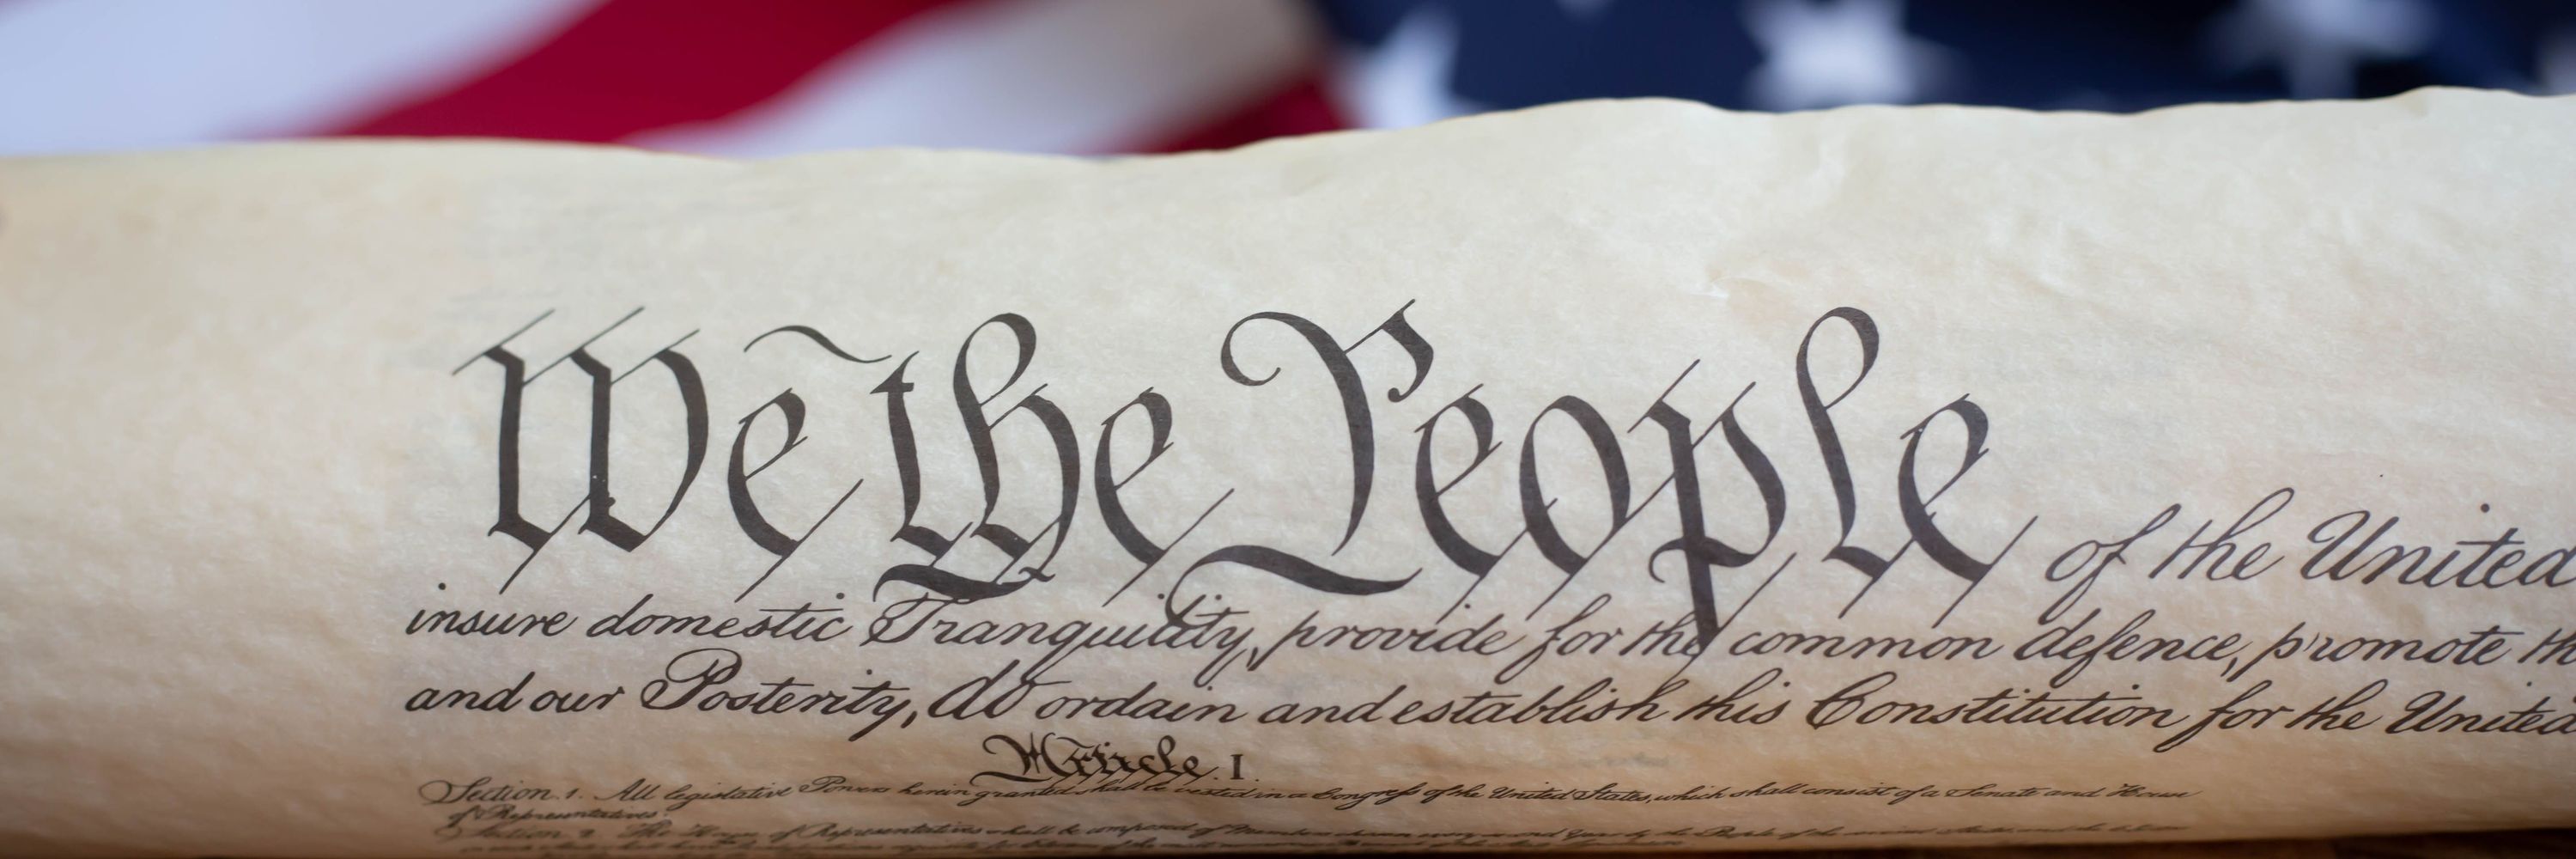 We the People of the United
insure domestic Tranquility, provide for the common defence, promote th
and our Posterity, do ordain and establish this Constitution for the United
Article. I.
Section. 1. All legislative Powers herein granted shall be vested in a Congress of the United States, which shall consist of a Senate and House
of Representatives.
Section. 2. The House of Representatives shall be composed of Members chosen every second Year by the People of the several States, and the